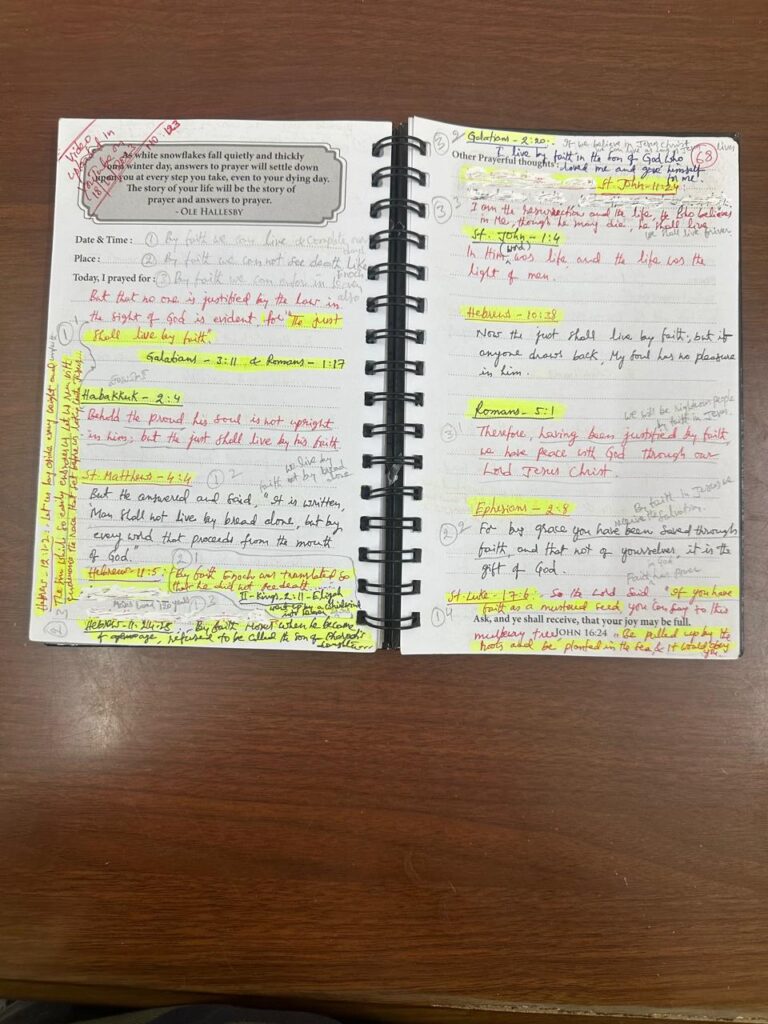 Video
uploaded in
No: 123
As white snowflakes fall quietly and thickly
on a winter day, answers to prayer will settle down
upon you at every step you take, even to your dying day.
The story of your life will be the story of
prayer and answers to prayer.
- OLE HALLESBY
Date & Time : ① By faith we can live a complete
Place : ② By faith we can not see death like
Enoch
Today, I prayed for : ③ By faith we can
also
But that no one is justified by the law in
the sight of God is evident, for "The just
shall live by faith".
Galatians - 3:11 & Romans - 1:17
Habakkuk - 2:4
Behold the proud his soul is not upright
in him; but the just shall live by his faith
St. Matthew - 4:4 ① 2
we live by
faith not by bread
alone
But He answered and said, "It is written,
Man shall not live by bread alone, but by
every word that proceeds from the mouth
of God."
② 1
Hebrew - 11:5 : By faith Enoch was translated so
that he did not see death.
II - Kings - 2:11 - Elijah
went by a whirlwind
Moses lived 120 years
Hebrews - 11:24-25 - By faith Moses when he became
of age, refused to be called the son of Pharaoh's
daughter
Hebrews - 12:1-2 : Let us lay aside every weight and
the sin which so easily ensnares us, let us run with
endurance the race that set before us
③ 2 Galatians - 2:20 : If we believe in Jesus Christ
lives
I live by faith in the son of God who
loved me and gave himself
for me.
68
Other Prayerful thoughts :
St. John - 11:24
③ 3 I am the resurrection and the life, he who believes
in Me, though he may die, he shall live
we shall live forever
St. John - 1:4
(word)
In Him was life, and the life was the
light of men.
Hebrews - 10:38
Now the just shall live by faith; but if
anyone draws back, My soul has no pleasure
in him.
Romans - 5:1
we will be righteous people
by faith in Jesus.
③ 1 Therefore, having been justified by faith,
we have peace with God through our
Lord Jesus Christ
Ephesians - 2:8
By faith in Jesus we
receive the Salvation.
② 2 For by grace you have been saved through
faith, and that not of yourselves, it is the
gift of God.
in God
Faith has power
St. Luke - 17:6 : So the Lord said "If you have
① 4 faith as a mustard seed, you can say to this
Ask, and ye shall receive, that your joy may be full.
mulberry tree JOHN 16:24 "Be pulled up by the
roots and be planted in the sea, & it would obey
you.